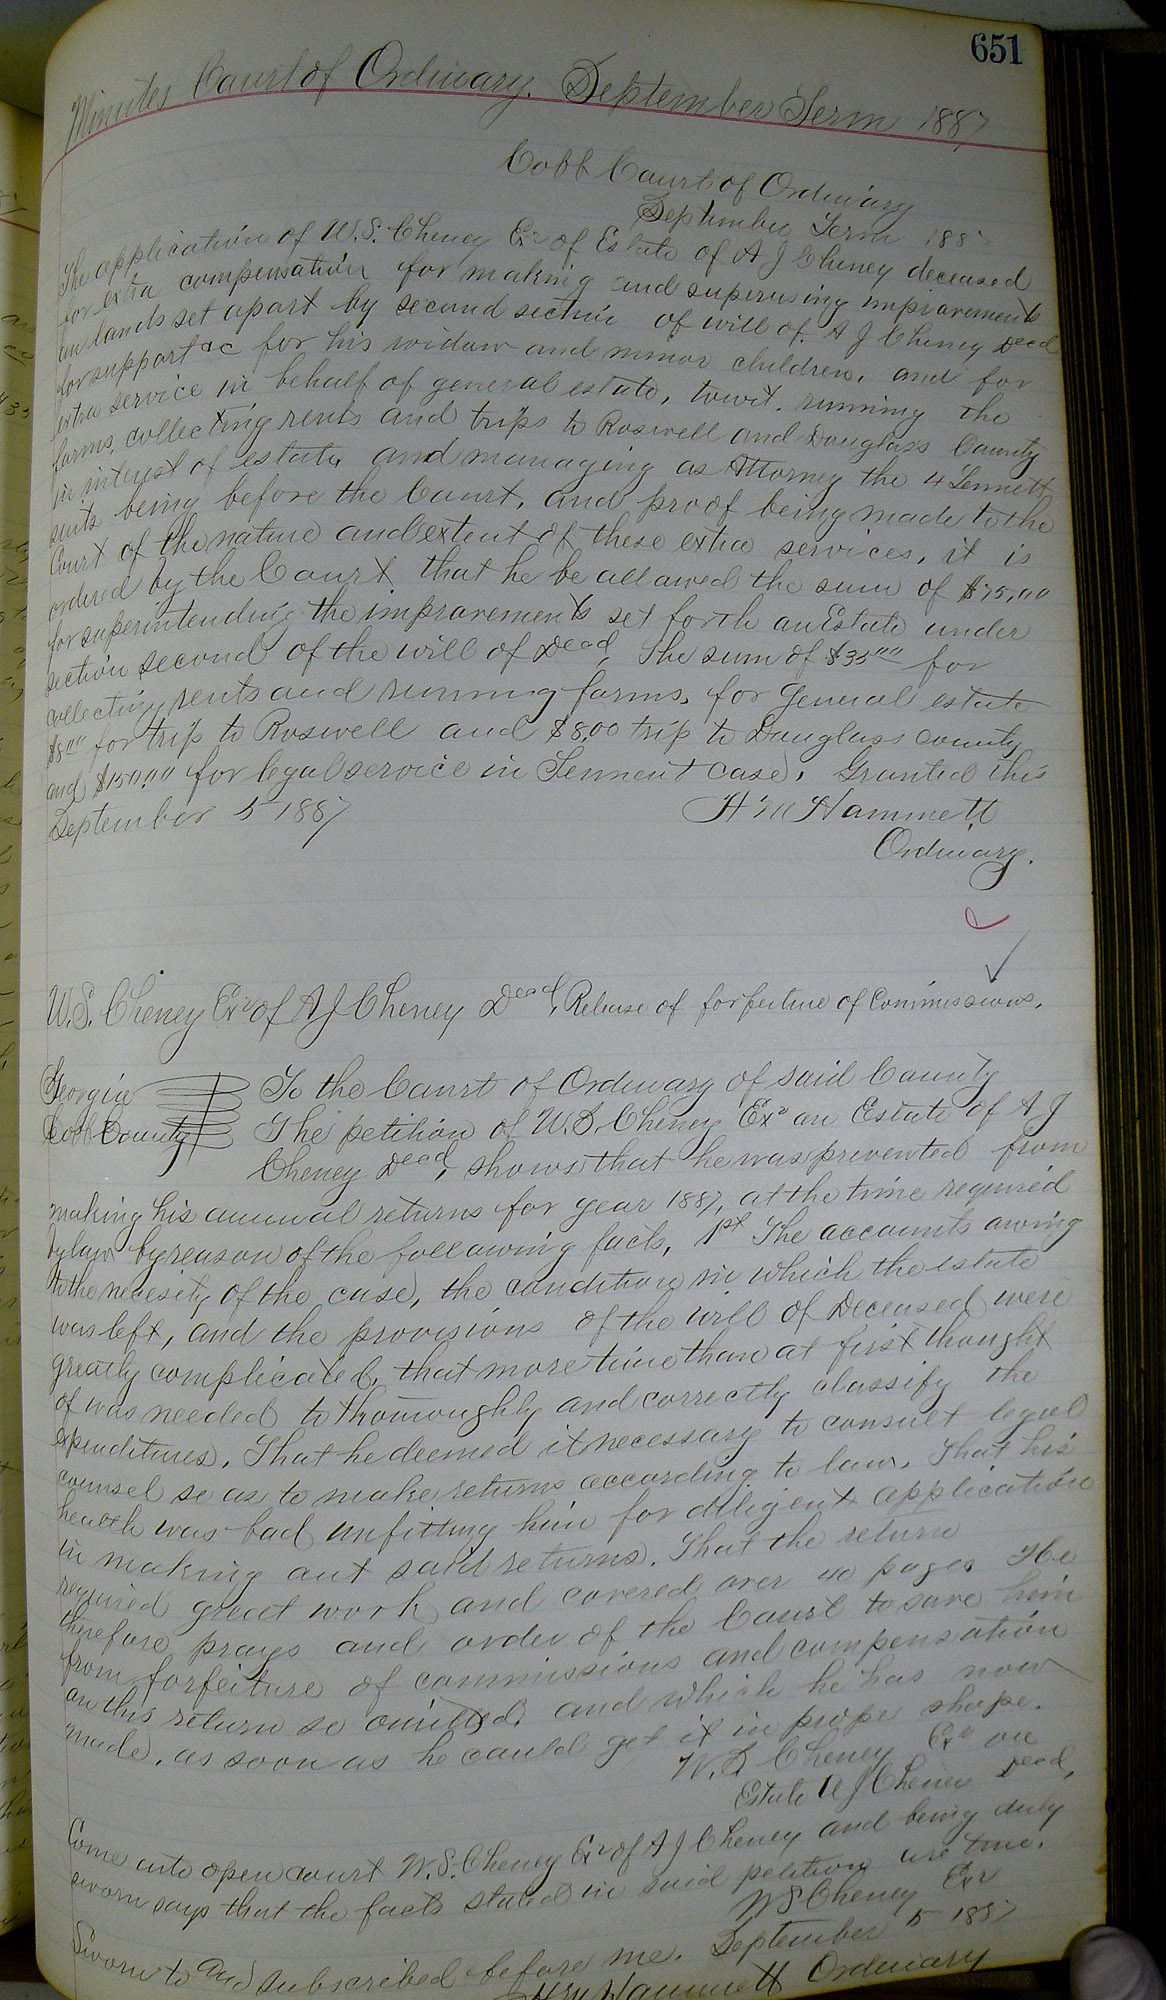 651
Minutes Court of Ordinary. September Term 1887
Cobb Court of Ordinary
September Term 188
The application of W.S. Cheney Exr of Estate of A J Cheney deceased
for extra compensation for making and supervising improvements
on lands set apart by second section of will of A J Cheney Decd
for support &c for his widow and minor children. and for
extra service in behalf of general estate, towit. running the
farms, collecting rents and trips to Roswell and Douglass County
in interest of estate, and managing as Attorney the 4 Tennett
suits being before the Court, and proof being made to the
Court of the nature and extent of these extra services, it is
ordered by the Court that he be allowed the sum of $75.00
for superintending the improvements set forth on Estate under
section second of the will of Decd, The sum of $35.00 for
collecting rents and running farms, for General estate
$8.00 for trip to Roswell and $8.00 trip to Douglass County
and $150.00 for legal service in Tennent case. Granted this
September 5 1887 H M Hammett
Ordinary.
W.S. Cheney Exr of A J Cheney Decd, Release of forfeiture of Commissions.
Georgia To the Court of Ordinary of said County
Cobb County The petition of W.S. Cheney Exr on Estate of A J
Cheney Decd, shows that he was prevented from
making his annual returns for year 1887, at the time required
by law by reason of the following facts, 1st The accounts owing
to the necesity of the case, the condition in which the estate
was left, and the provisions of the will of Deceased were
greatly complicated, that more time than at first thought
of was needed to thoroughly and correctly classify the
expenditures. That he deemed it necessary to consult legal
counsel so as to make returns according to law. That his
health was bad unfitting him for diligent application
in making out said returns. That the return
required great work and covered over 40 pages He
therefore prays and order of the Court to save him
from forfeiture of commissions and compensation
on this return so omitted, and which he has now
made, as soon as he could get it in prope shape.
W.S Cheney Exr on
Estate A J Cheney Decd,
Come into open court W.S. Cheney Exr of A J Cheney and being duly
sworn says that the facts stated in said petition are true.
W S Cheney Exr
Sworn to and subscribed before me. September 5 1887
H M Hammett Ordinary